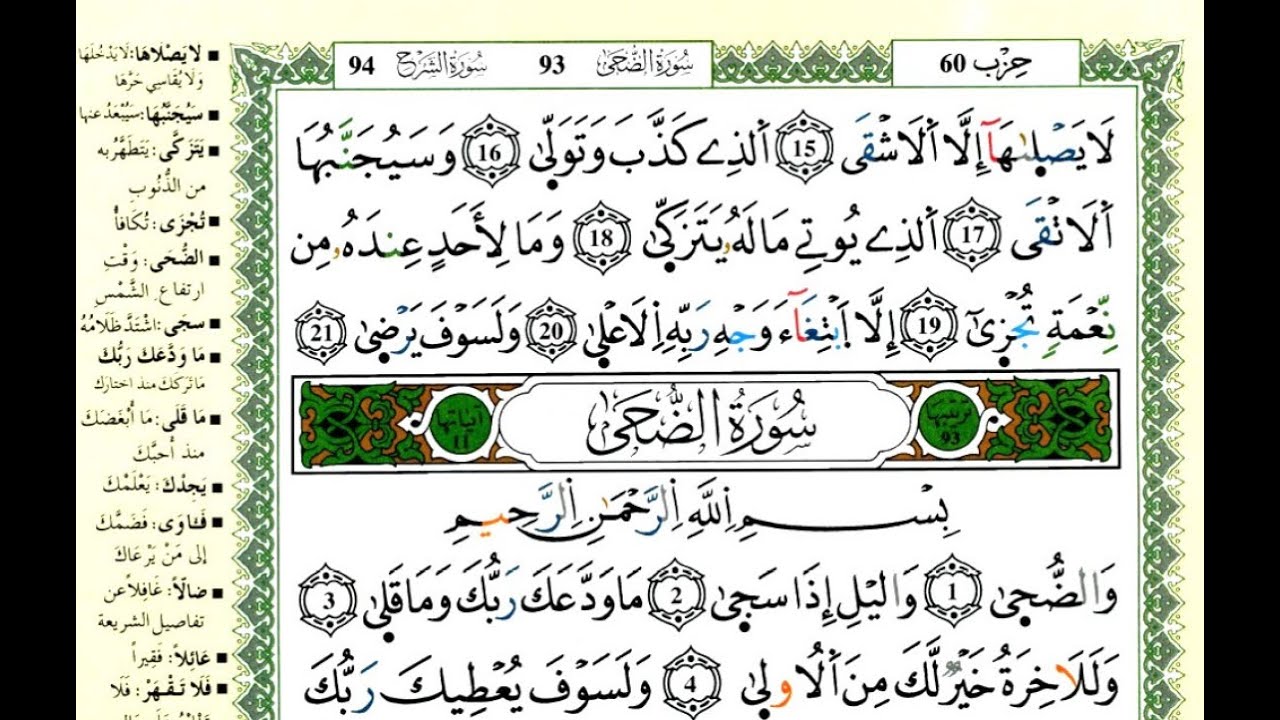 حِزْب 60
سُورَةُ الضُّحَىٰ 93 سُورَةُ الشَّرْحِ 94
لَا يَصْلَىٰهَآ إِلَّا اَ۬لَاشْقَى 15 اَ۬لذِے كَذَّبَ وَتَوَلّ۪ىٰ 16 وَسَيُجَنَّبُهَا
اَ۬لَاتْقَى 17 اَ۬لذِے يُوتِے مَالَهُۥ يَتَزَكّ۪ىٰ 18 وَمَا لِأَحَدٍ عِندَهُۥ مِن
نِّعْمَةٖ تُجْز۪ىٰٓ 19 إِلَّا اَ۪بْتِغَآءَ وَجْهِ رَبِّهِ اِ۬لَاعْل۪ىٰ 20 وَلَسَوْفَ يَرْض۪ىٰ 21
ترتيبها 93
سُورَةُ الضُّحَىٰ
آياتها 11
بِسْمِ اِ۬للَّهِ اِ۬لرَّحْمَٰنِ اِ۬لرَّحِيمِ
وَالضُّح۪ىٰ 1 وَاليْلِ إِذَا سَج۪ىٰ 2 مَا وَدَّعَكَ رَبُّكَ وَمَا قَل۪ىٰ 3
وَلَلَاخِرَةُ خَيْرٞ لَّكَ مِنَ اَ۬لُاول۪ىٰ 4 وَلَسَوْفَ يُعْطِيكَ رَبُّكَ
■ لا يَصْلَاهَا: لَا يَدْخُلُهَا
وَلَا يُقَاسِي حَرَّهَا
■ سَيُجَنَّبُهَا: سَيُبْعَدُ عنها
■ يَتَزَكَّى: يَتَطَهَّرُ به
من الذُّنُوبِ
■ تُجْزَى: تُكَافَأُ
■ الضُّحَى: وَقْتِ
ارتفاع الشَّمْسِ
■ سجَى: اشْتَدَّ ظَلَامُهُ
■ مَا وَدَّعَكَ رَبُّكَ
مَا تَرَكَكَ منذ اختارك
■ مَا قَلَى: مَا أَبْغَضَكَ
منذ أَحبَّكَ
■ يَجِدْكَ: يَعْلَمْكَ
■ فَـَٔاوَى: فَضَمَّكَ
إلى مَنْ يَرْعَاكَ
■ ضَالّاً: غَافِلاً عن
تفاصيل الشريعة
■ عَائِلاً: فَقيراً
■ فَلَا تَقْهَرْ: فَلَا